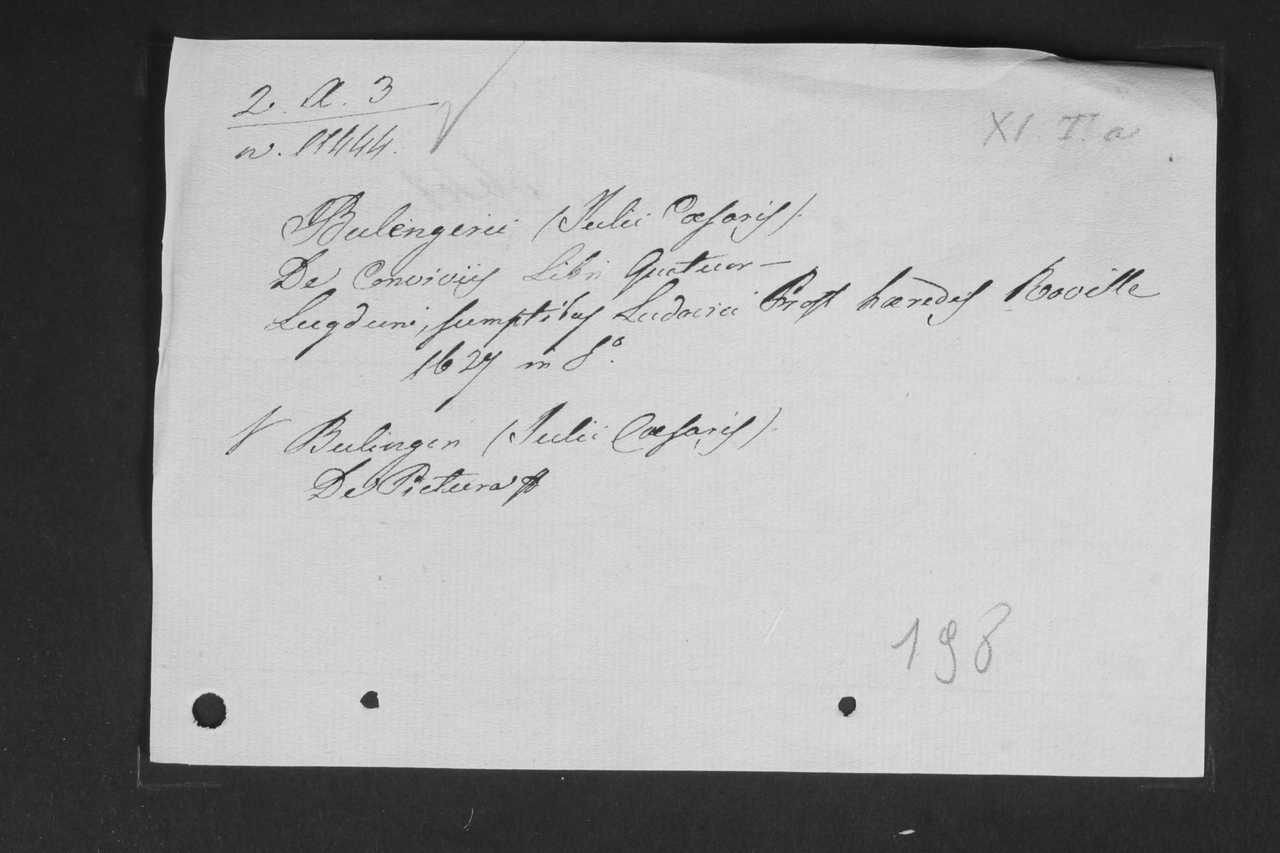 2. A. 3
XI. II. a
n. 11444.
Bulengerii (Julii Cæsaris).
De Conviviis Libri Quatuor—
Lugduni, sumptibus Ludovici Prost hæredis Roville
1627 in 8°.
Bulingeri (Julii Cæsaris).
De Pictura
198